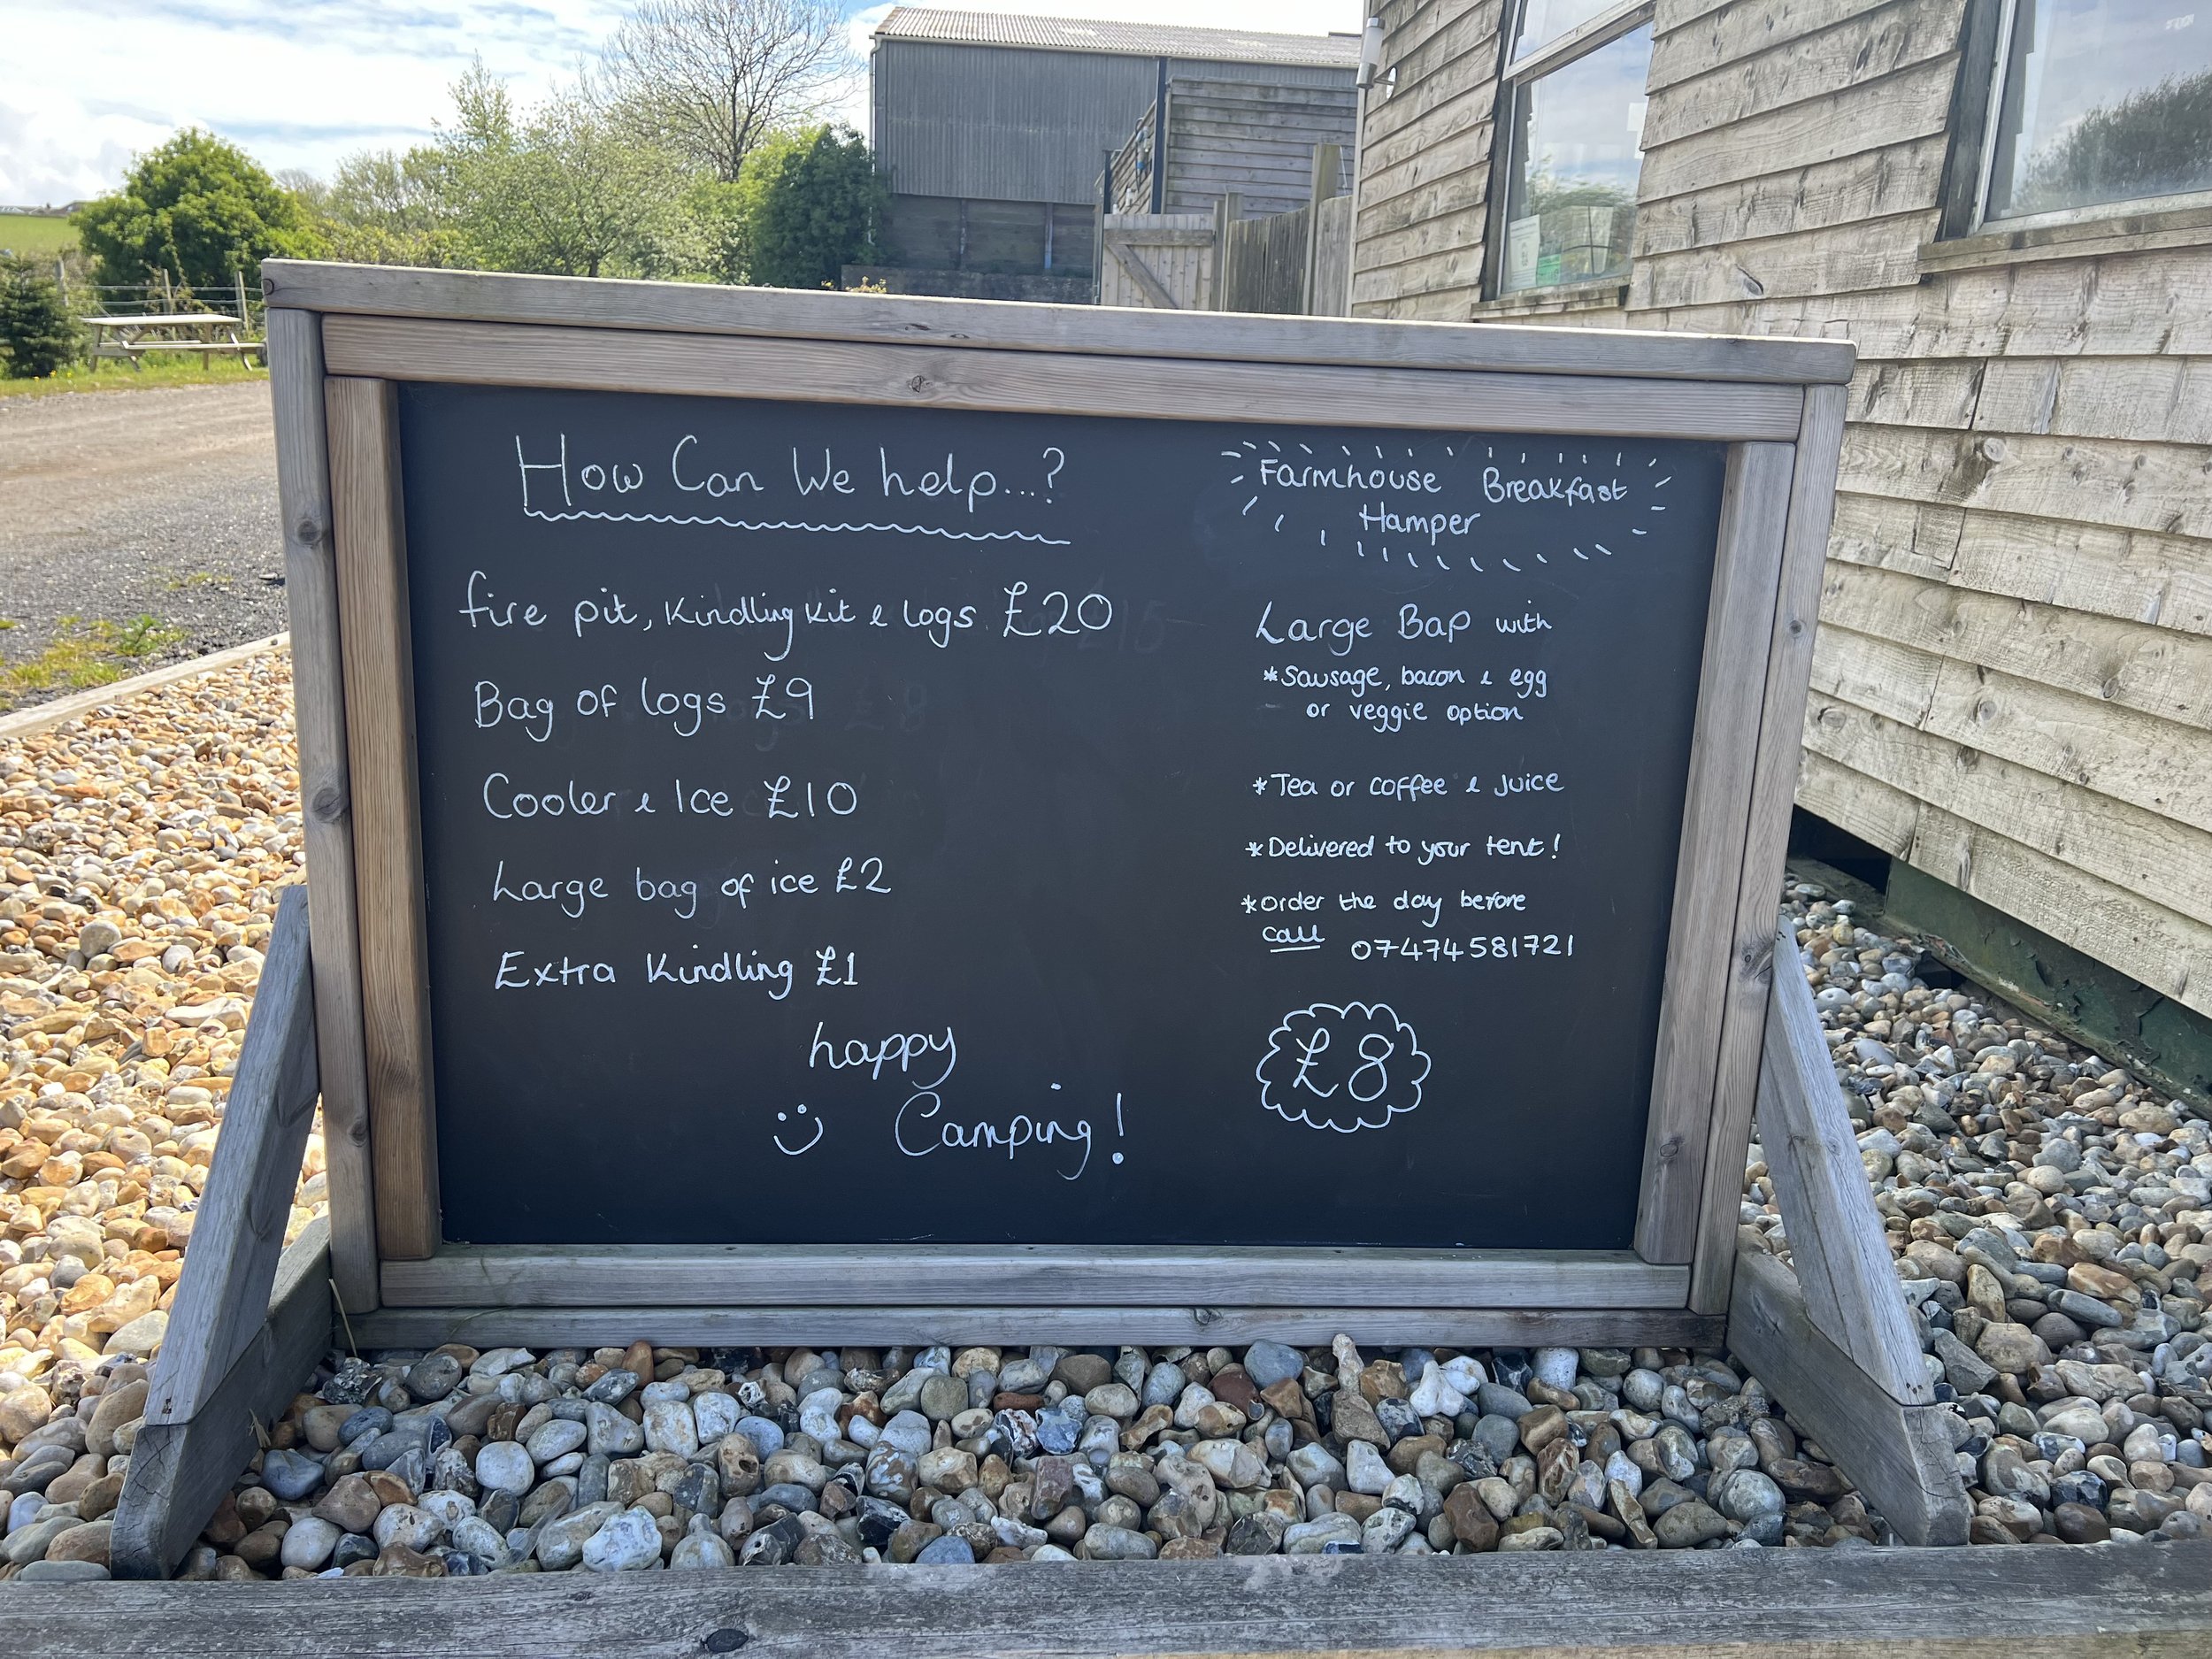 How Can We help...?
fire pit, Kindling Kit & logs £20
Bag of logs £9
Cooler & Ice £10
Large bag of ice £2
Extra Kindling £1
happy
Camping!
Farmhouse Breakfast
Hamper
Large Bap with
*Sausage, bacon & egg
or veggie option
*Tea or coffee & Juice
*Delivered to your tent!
*order the day before
call 07474581721
£8